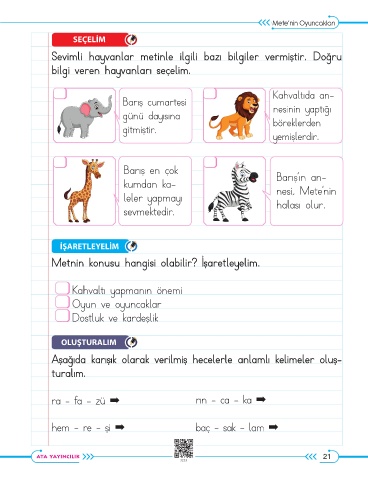 Mete'nin Oyuncakları
SEÇELİM
Sevimli hayvanlar metinle ilgili bazı bilgiler vermiştir. Doğru
bilgi veren hayvanları seçelim.
Barış cumartesi
günü dayısına
gitmiştir.
Kahvaltıda an-
nesinin yaptığı
böreklerden
yemişlerdir.
Barış en çok
kumdan ka-
leler yapmayı
sevmektedir.
Barış'ın an-
nesi, Mete'nin
halası olur.
İŞARETLEYELİM
Metnin konusu hangisi olabilir? İşaretleyelim.
Kahvaltı yapmanın önemi
Oyun ve oyuncaklar
Dostluk ve kardeşlik
OLUŞTURALIM
Aşağıda karışık olarak verilmiş hecelerle anlamlı kelimeler oluş-
turalım.
ra - fa - zü ➡
rın - ca - ka ➡
hem - re - şi ➡
baç - sak - lam ➡
ATA YAYINCILIK
21